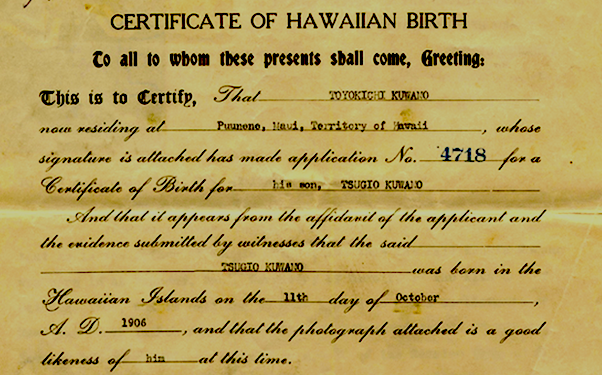 CERTIFICATE OF HAWAIIAN BIRTH
To all to whom these presents shall come, Greeting:
This is to Certify, That TOYOKICHI KUWANO
now residing at Puunene, Maui, Territory of Hawaii, whose
signature is attached has made application No. 4718 for a
Certificate of Birth for his son, TSUGIO KUWANO
And that it appears from the affidavit of the applicant and
the evidence submitted by witnesses that the said
TSUGIO KUWANO was born in the
Hawaiian Islands on the 11th day of October,
A. D. 1906, and that the photograph attached is a good
likeness of him at this time.